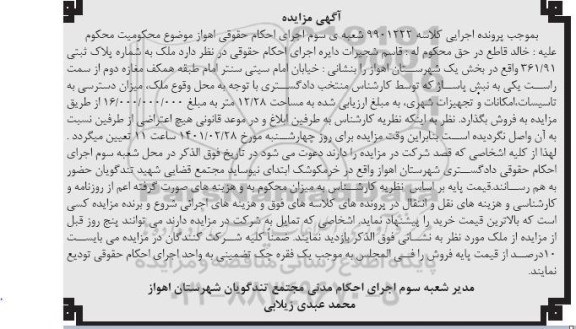 آگهی مزایده
بموجب پرونده اجرایی کلاسه ۹۹۰۱۲۲۲ شعبه ی سوم اجرای احکام حقوقی اهواز موضوع محکومیت محکوم
علیه : خالد قاطع در حق محکوم له : قاسم شجیرات دایره اجرای احکام حقوقی در نظر دارد ملک به شماره پلاک ثبتی
۳۶۱/۹۱ واقع در بخش یک شهرستان اهواز را بنشانی : خیابان امام سیتی سنتر امام طبقه همکف مغازه دوم از سمت
راست یکی به نبش پاساژ که توسط کارشناس منتخب دادگستری با توجه به محل وقوع ملک، میزان دسترسی به
تاسیسات،امکانات و تجهیزات شهری، به مبلغ ارزیابی شده به مساحت ۱۲/۲۸ متر به مبلغ ۱۶/۰۰۰/۰۰۰/۰۰۰ از طریق
مزایده به فروش بگذارد. نظر به اینکه نظریه کارشناس به طرفین ابلاغ و در موعد قانونی هیچ اعتراضی از طرفین نسبت
به آن واصل نگردیده است. بنابراین وقت مزایده برای روز چهارشنبه مورخ ۱۴۰۱/۰۲/۲۸ ساعت ۱۱ تعیین میگردد .
لهذا از کلیه اشخاصی که قصد شرکت در مزایده را دارند دعوت می شود در تاریخ فوق الذکر در محل شعبه سوم اجرای
احکام حقوقی دادگستری شهرستان اهواز واقع در خرمکوشک ابتدای نیوساید مجتمع قضایی شهید تندگویان حضور
به هم رسانند.قیمت پایه بر اساس نظریه کارشناس به میزان محکوم به و هزینه های صورت گرفته اعم از روزنامه و
کارشناسی و هزینه های نقل و انتقال در پرونده های کلاسه های فوق و هزینه های اجرائی شروع و برنده مزایده کسی
است که بالاترین قیمت خرید را پیشنهاد نماید. اشخاصی که تمایل به شرکت در مزایده دارند می توانند پنج روز قبل
از مزایده از ملک مورد نظر به نشانی فوق الذکر بازدید نمایند. ضمناً کلیه شرکت کنندگان در مزایده می بایست
۱۰درصد از قیمت پایه فروش را فی المجلس به موجب یک فقره چک تضمینی به واحد اجرای احکام حقوقی تودیع
نمایند.
مدیر شعبه سوم اجرای احکام مدنی مجتمع تندگویان شهرستان اهواز
محمد عبدی زیلابی